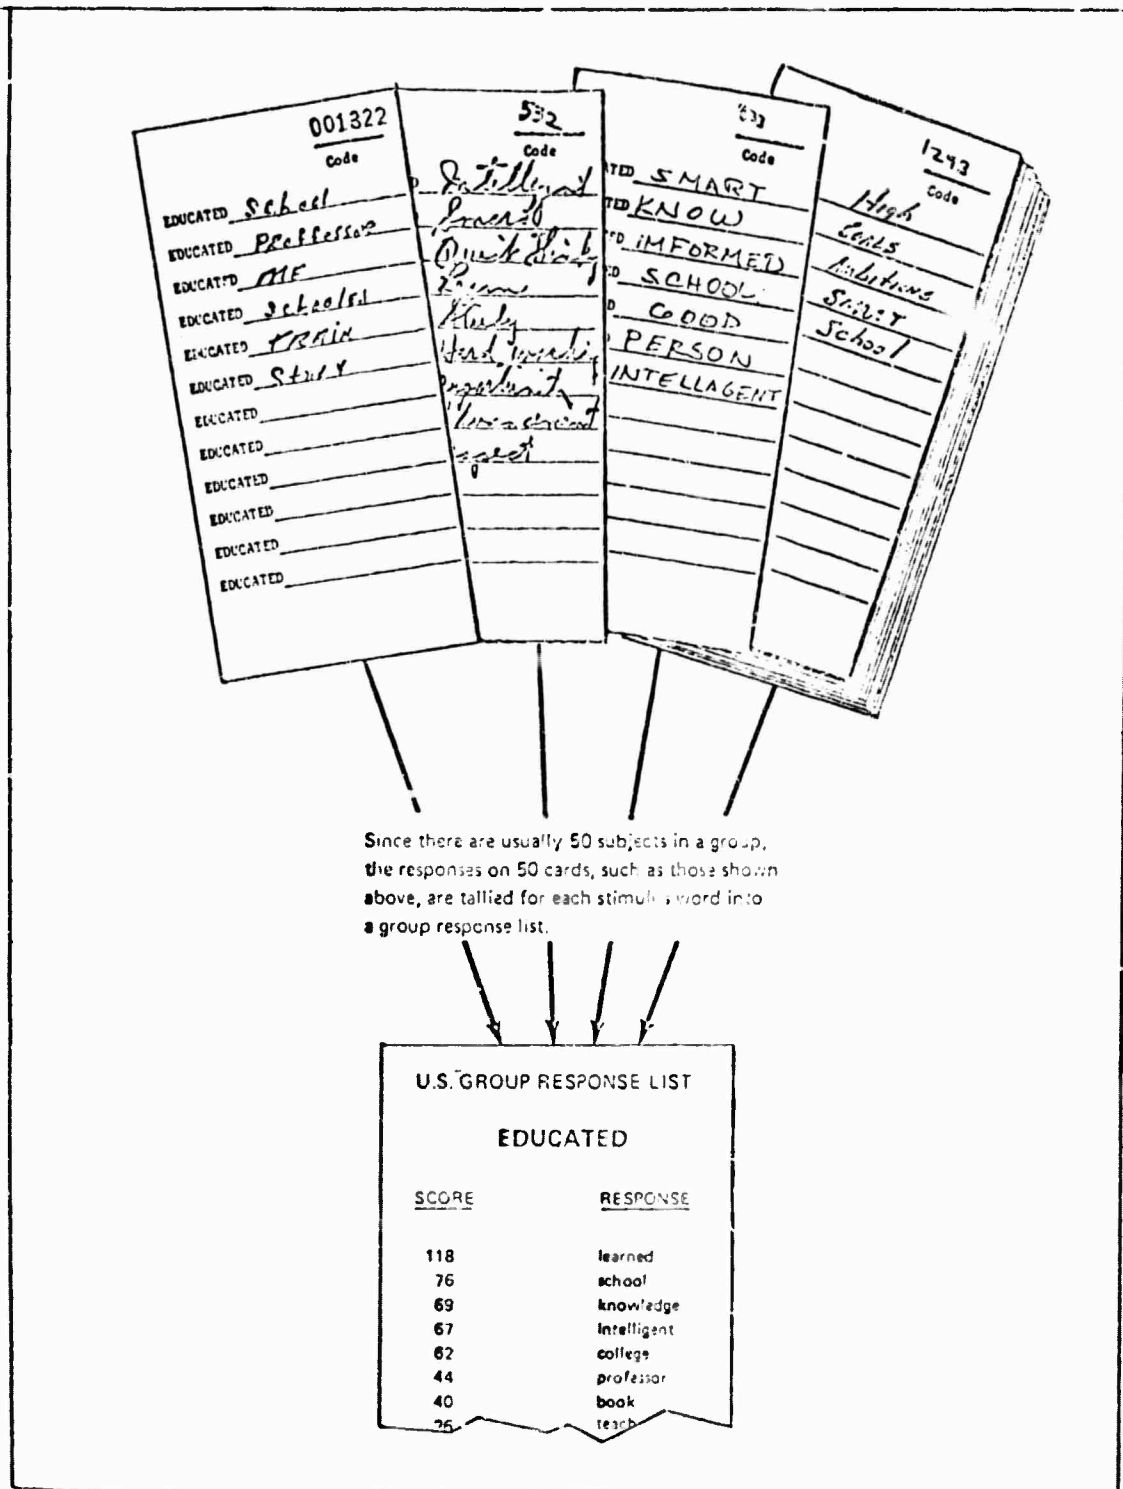 001322
Code
EDUCATED School
EDUCATED Proffessor
EDUCATED ME
EDUCATED Schooled
EDUCATED TRAIN
EDUCATED
EDUCATED
EDUCATED
EDUCATED
EDUCATED
EDUCATED
EDUCATED
532
Code
Intelligent
Quick
Learn
Study
Hard working
1243
Code
High
Ambitions
School
Code
SMART
KNOW
IMFORMED
SCHOOL
GOOD
PERSON
INTELLAGENT
Since there are usually 50 subjects in a group,
the responses on 50 cards, such as those shown
above, are tallied for each stimulus word into
a group response list.
U.S. GROUP RESPONSE LIST
EDUCATED
SCORE RESPONSE
118 learned
76 school
69 knowledge
67 intelligent
62 college
44 professor
40 book
26 teach